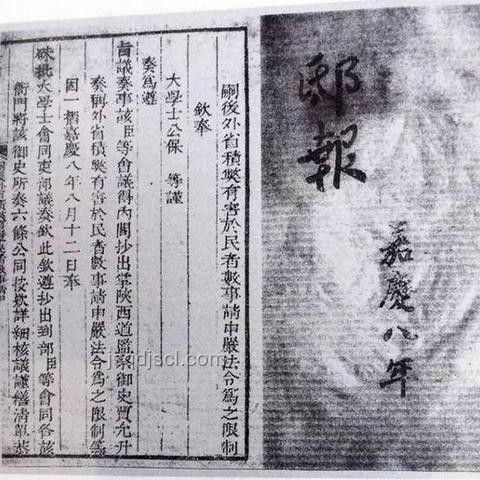 邸報
嘉慶八年
嗣後外省積獘有害於民者數事請申嚴法令為之限制
欽奉
大學士公保 等謹
奏為遵
旨議奏事該臣等會議得內閣抄出掌陝西道監察御史賈允升
奏稱外省積獘有害於民者數事請申嚴法令為之限制等
因一摺嘉慶八年八月十二日奉
硃批大學士會同吏部議奏欽此欽遵抄出到部臣等會同各該
衙門將該御史所奏六條公同按款詳細核議謹繕清單恭